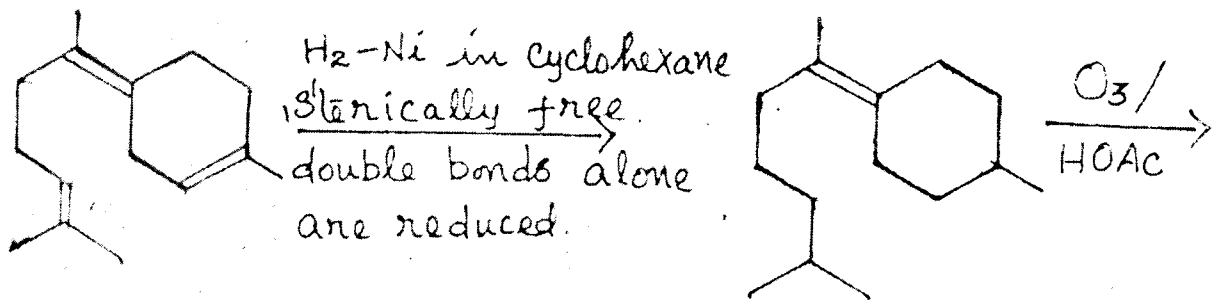 H₂-Ni in cyclohexane
sterically free.
double bonds alone
are reduced.
O₃/
HOAc